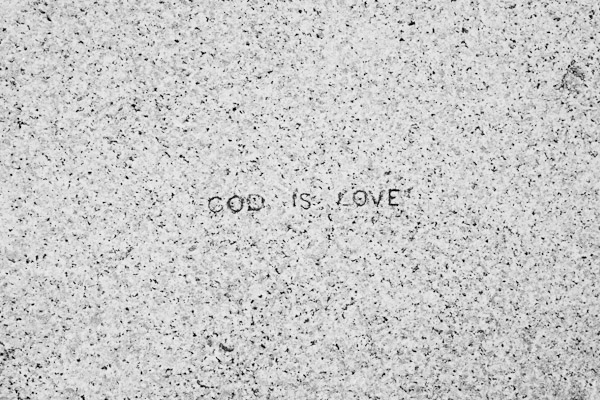 GOD IS LOVE